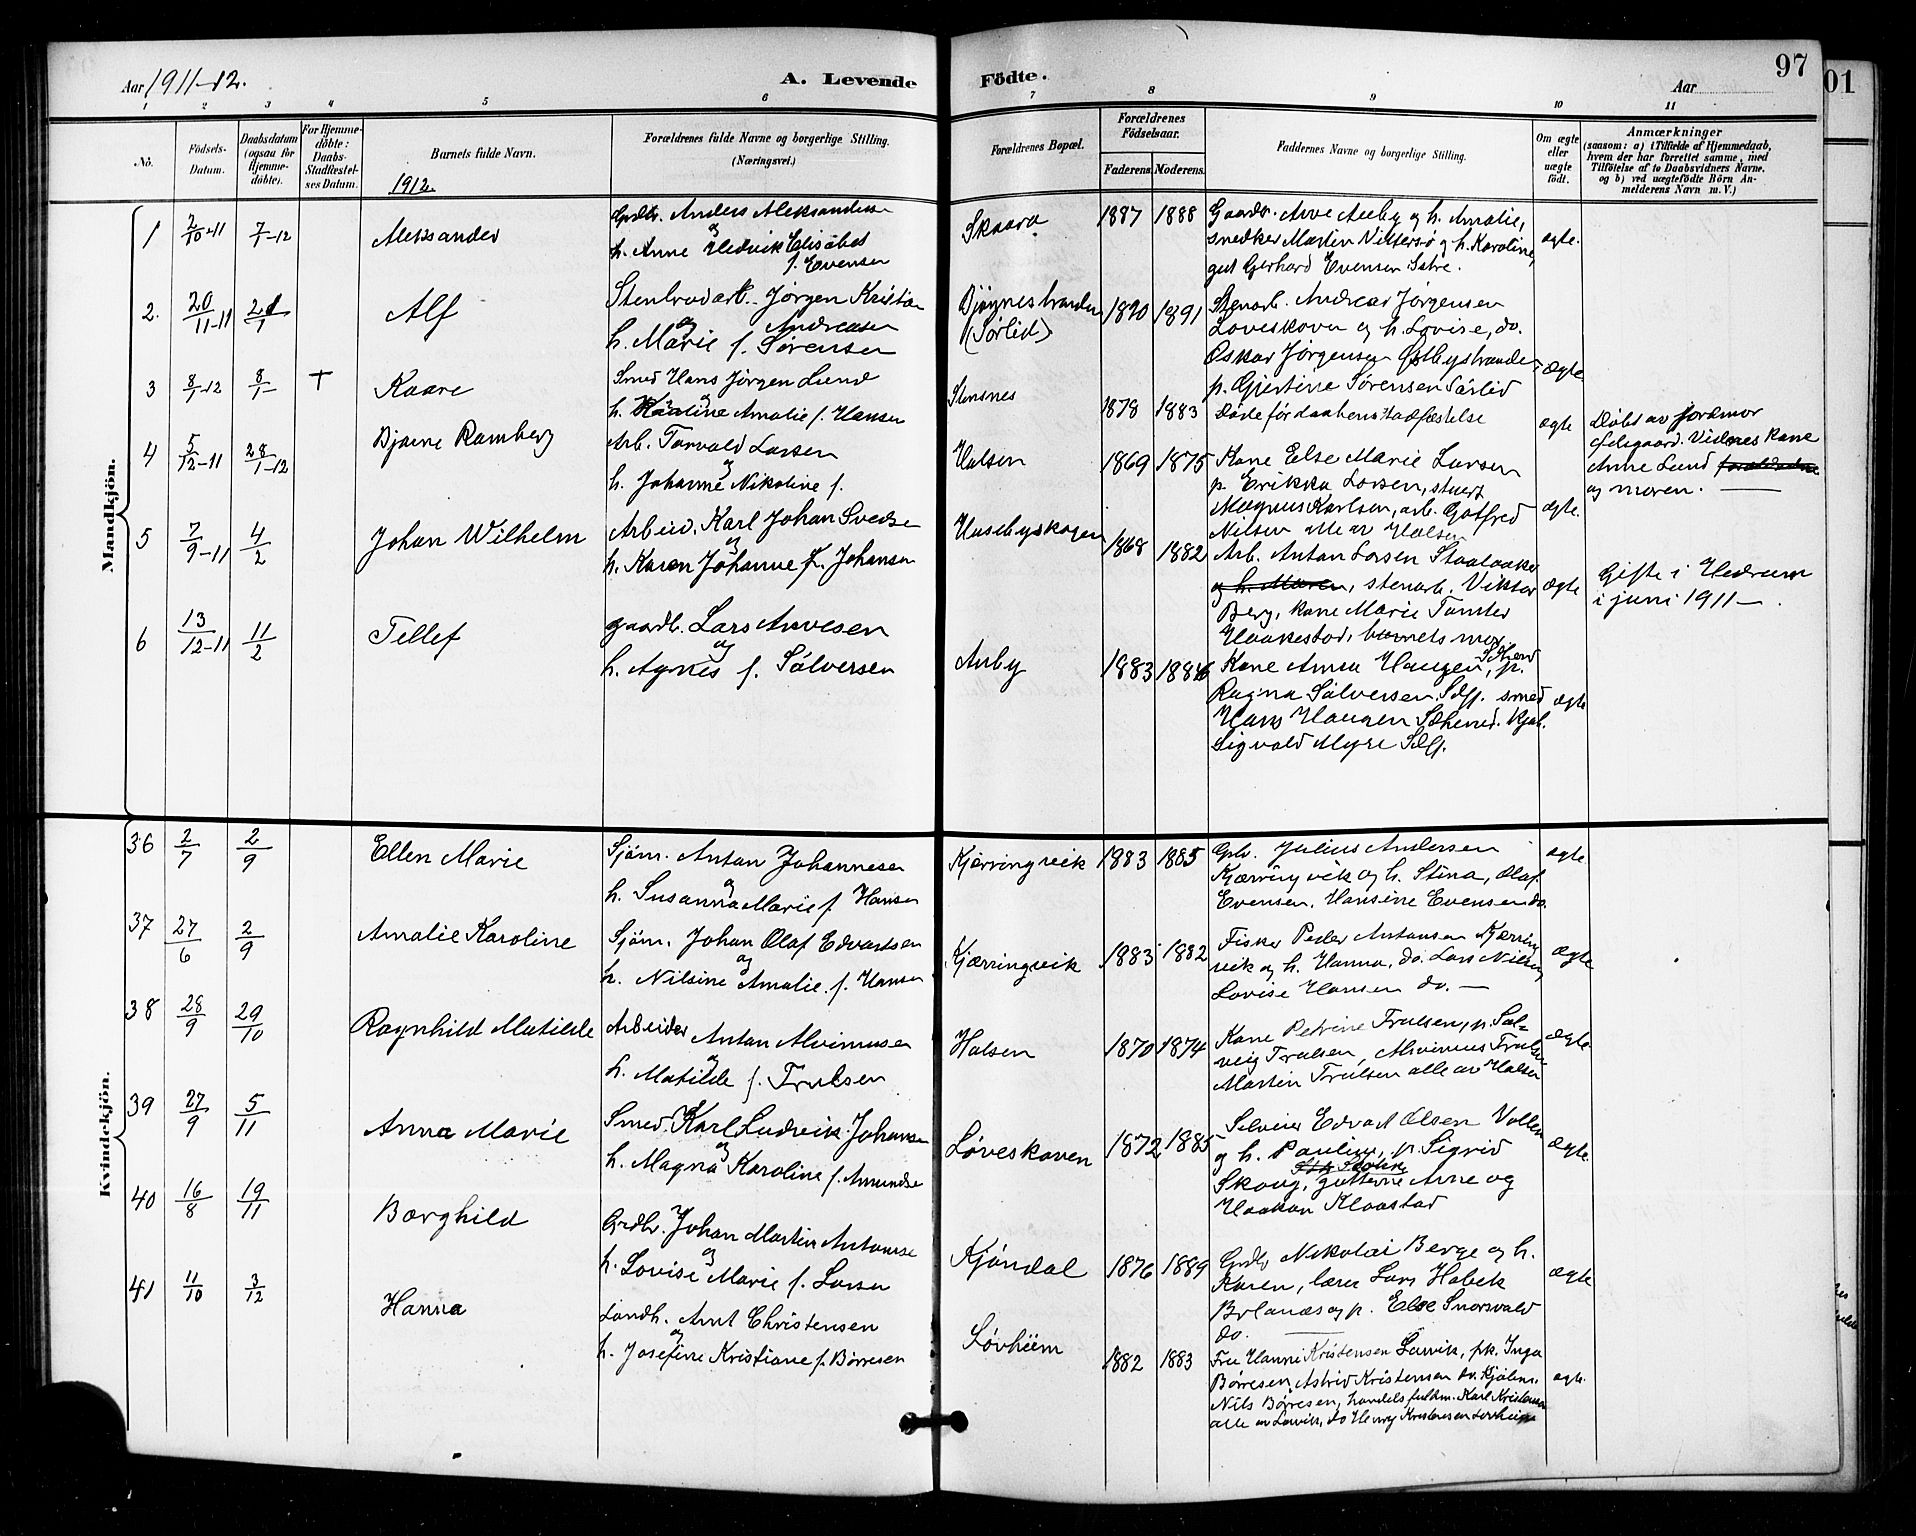 Aar 1911-12.
A. Levende
Födte.
Aar
97
01
1 2 3 4 5 6
7 8 9 10 11
No.
Födsels-
Datum.
Daabsdatum
(ogsaa for
Hjemme-
döbte).
For Hjemme-
döbte:
Daabs-
Stadfæstel-
ses Datum.
Barnets fulde Navn.
1912.
Forældrenes fulde Navne og borgerlige Stilling.
(Næringsvei.)
Forældrenes Bopæl.
Forældrenes
Födselsaar.
Faderens.
Moderens.
Faddernes Navne og borgerlige Stilling.
Om ægte
eller
uægte
födt.
Anmærkninger
(saasom: a) i Tilfælde af Hjemmedaab,
hvem der har forrettet samme, med
Tilföielse af to Daabsvidners Navne,
og b) ved uægtefödte Börn An-
melderens Navn m. V.)
Mandkjön.
1 2/10-11 7/1-12 Aleksander
Anders Aleksandersen
og
h. Anne Hedvik Elisabet
f. Evensen
Skaara
1887 1888
Gaardbr. Arve Aulby og h. Amalie,
snedker Martin Vittersø og h. Karoline,
gut Gerhard Evensen Istre.
ægte.
2. 20/11-11 21/1 Alf
Stenbrudarb. Jørgen Kristian
og Andreasen
h. Marie f. Sørensen
(Sørlid)
1890 1891
Stenarb. Andreas Jørgensen
Løveskoven og h. Lovise, do.
Oskar Jørgensen Østbystranden
p. Gjertine Sørensen Sørlid
ægte
3 8/1-12 8/1 + Kaare
Smed Hans Jørgen Lund
og
h. Karoline Amalie f. Hansen
Stensnes
1878 1883
Døde før daabens stadfæstelse
ægte
Døbt av jordmor
Vidnes kone
Anne Lund
og moren. —
4 5/12-11 28/1-12 Bjarne Ramberg
Arb. Torvald Larsen
og
h. Johanne Nikoline f.
Halsen
1869 1875
Kone Else Marie Larsen
p. Erikka Larsen, stuert
Magnus Karlsen, arb. Gotfred
Nilsen alle av Halsen
ægte.
5 7/9-11 4/2 Johan Wilhelm
Arbeid. Karl Johan Svedse
og
h. Karen Johanne f. Johansen
Husebyskogen
1868 1882
Arb. Anton Larsen Staalaaker
og h. Maren, stenarb. Viktor
Berg, kone Marie Tomter
Haakestad, barnets mor.
ægte
Gifte i Hedrum
i juni 1911 —.
6 13/12-11 11/2 Tellef
gaardb. Lars Arvesen
og
h. Agnes f. Sølversen
Auby
1883 1886
Kone Anna Haugen, p.
Ragna Sølversen, smed
Hans Haugen
Sigvald Myre
ægte
Kvindekjön.
36 2/7 2/9 Ellen Marie
Sjøm. Anton Johannesen
og
h. Susanna Marie f. Hansen
Kjærringvik
1883 1885
Gbr. Julius Andersen
Kjærringvik og h. Stina, Olaf
Evensen, Hansine Evensen do.
ægte
37 27/6 2/9 Amalie Karoline
Sjøm. Johan Olaf Edvartsen
og
h. Nilsine Amalie f. Hansen
Kjærringvik
1883 1882
Fisker Peder Antonsen Kjærring-
vik og h. Hanna, do. Lars Nilsen,
Lovise Hansen do. —
ægte
38 28/9 29/10 Ragnhild Matilde
Arbeider Anton Alvimusen
og
h. Matilde f. Trulsen
Halsen
1870 1874
Kone Petrine Trulsen, p. Sol-
veig Trulsen, Alvimus Trulsen
Martin Trulsen alle av Halsen
ægte.
39 27/9 5/11 Anna Marie
Smed. Karl Ludvik Johansen
og
h. Magna Karoline f. Amundsen
Løveskoven
1872 1885
Selveier Edvart Olsen Vollen
og h. Pauline, p. Sigrid
Skoug, gutterne Arne og
Haakon Klaastad
ægte
40 16/8 19/11 Borghild
Grdbr. Johan Martin Antonsen
og
h. Lovise Marie f. Larsen
Kjøndal
1876 1889
Grdbr. Nikolai Berge og h.
Karen, lærer Lars Holbek
Brlanæs og p. Else Snorsvald
do.
ægte
41 11/10 3/12 Hanna
Landh. Arnt Christensen
og
h. Josefine Kristiane f. Børresen
Løvheim
1882 1883
Fru Hanna Kristensen Larvik, frk. Inga
Børresen, Astrid Kristensen do. Kjøbm.
Nils Børresen, handelsfuldm. Karl Kristensen
alle av Larvik, do Henry Kristensen Løvheim
ægte.